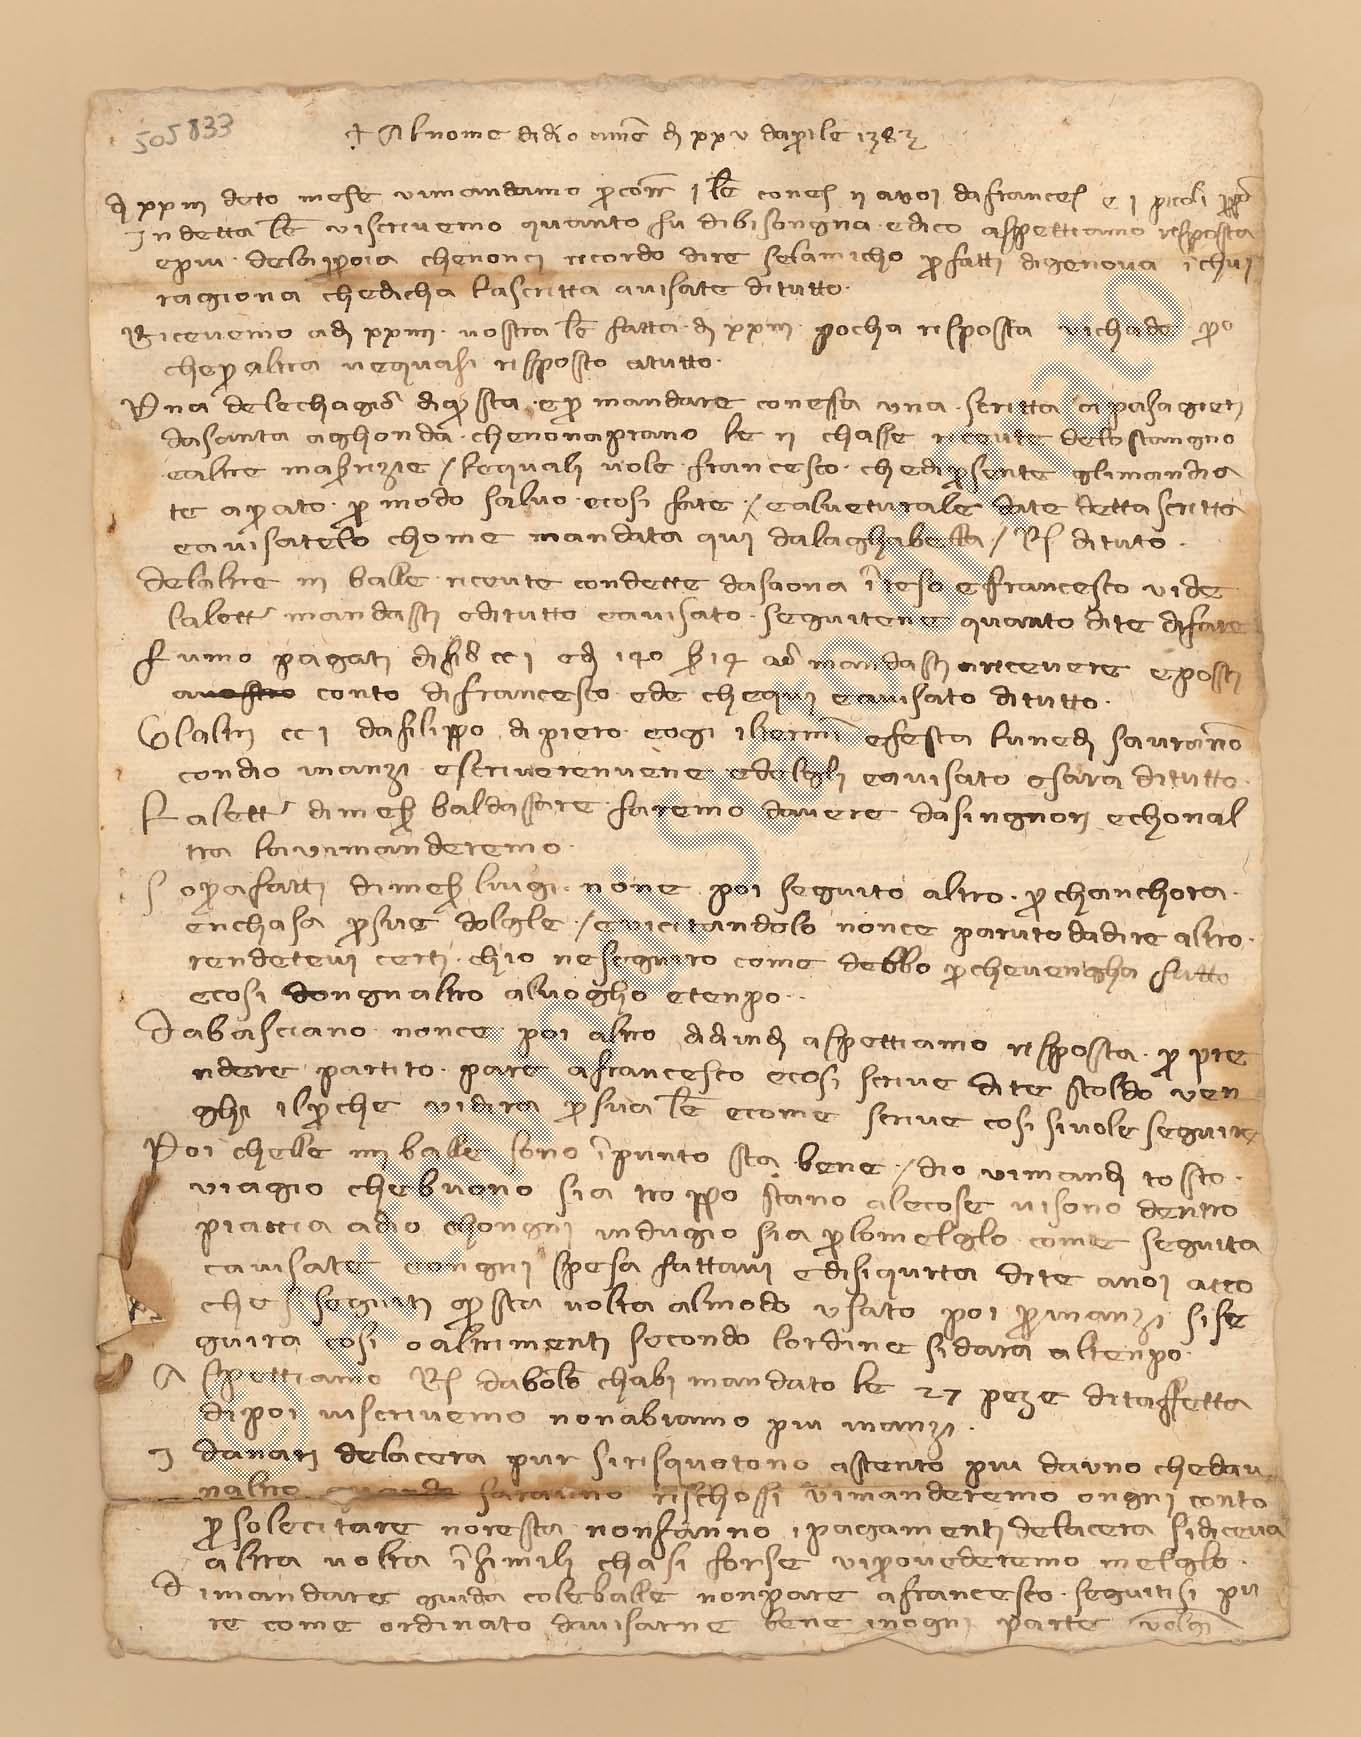 505833
† Al nome di dio amē dj xxv daprile 1383
dj xxiij deto mese vimandamo
Indetta lē viscrivemo quanto fu dibisongna edico aspettiamo risposta
epiu delapoia chenonci ricordo dire selamicho ꝑfatti digenova ī chui
ragiona chedicha lascritta avisate ditutto
Ricevemo adj xxiiij vostra lē fatta dj xxiij pocha risposta vichade ꝑo
cheꝑ altra vequasi risposto atutto
Una delechagiō diqͦsta eꝑ mandare conessa una scritta apasagieri
dasanta aghonda chenonaprano le ij chasse ricevte delo stangno
ealtre / lequali vole francesco chediꝑsente glimandia
te aprato ꝑ modo salvo ecosi fate / ealveturale date detta scritta
eavisatelo chome mandata qui dalaghabella / Rͤ dituto
delaltre iij balle ricevte condette dasaona īteso efrancesco vide
lalettͣ mandasti editutto eavisato seguitene quanto dite difare
fumo pagati di cci edj 140 mandasti aricevere eposti
avostro conto difrancesco ede chequi eavisato ditutto
Glaltri cci dafilippo dipiero eogi efesta lunedj savrāno
condio inanzi escriverenvene edeglli eavisato osara ditutto
Lalettͣ dimeß baldassare faremo davere dasingnori echonal
tra lavimanderemo
Sopra fatti dimeß luigi none poi seguito altro ꝑchanchora
enchasa ꝑsue dolgle / evicitandolo nonce paruto dadire altro
rendetevi certi chio neseguiro come debbo ꝑchevengha fatto
ecosi dongnaltro alvogho etenpo
Dabasciano nonce poi altro aspettiamo risposta ꝑ pre
ndere partito pare afrancesco ecosi scrive dite stoldo ven
ghi ilꝑche vidira ꝑsua lē ecome scrive cosi sivole seguire
Poi chelle iiij balle sono īpunto sta bene / dio vimandj tosto
viagio chebuono sia troppo stano alecose visono dentro
piaccia adio chongni indugio sia ꝑlomelglo come seguita
cavisate eongni spesa fattavi edisiquita dite anoi
che seguiti qͦsta volta almodo usato poi ꝑinanzi sise
guira cosi oaltrimenti secondo lordine sidara altenpo
Aspettiamo Rͤ dabolō chabi mandato le 27 peze ditaffetta
dipoi viscrivemo nonabiamo piu inanzi
I danari delacera pur sirisquotono astento piu davno chedau
naltro saranno rischossi vimanderemo ongni conto
ꝑsolecitare noresta nonfanno i pagamenti delacera sidiceva
altra volta īsimili chasi forse viprovederemo melglo
Dimandare guida coleballe nonpare afrancesco seguitisi pu
re come ordinato davisarne bene inogni parte volgī